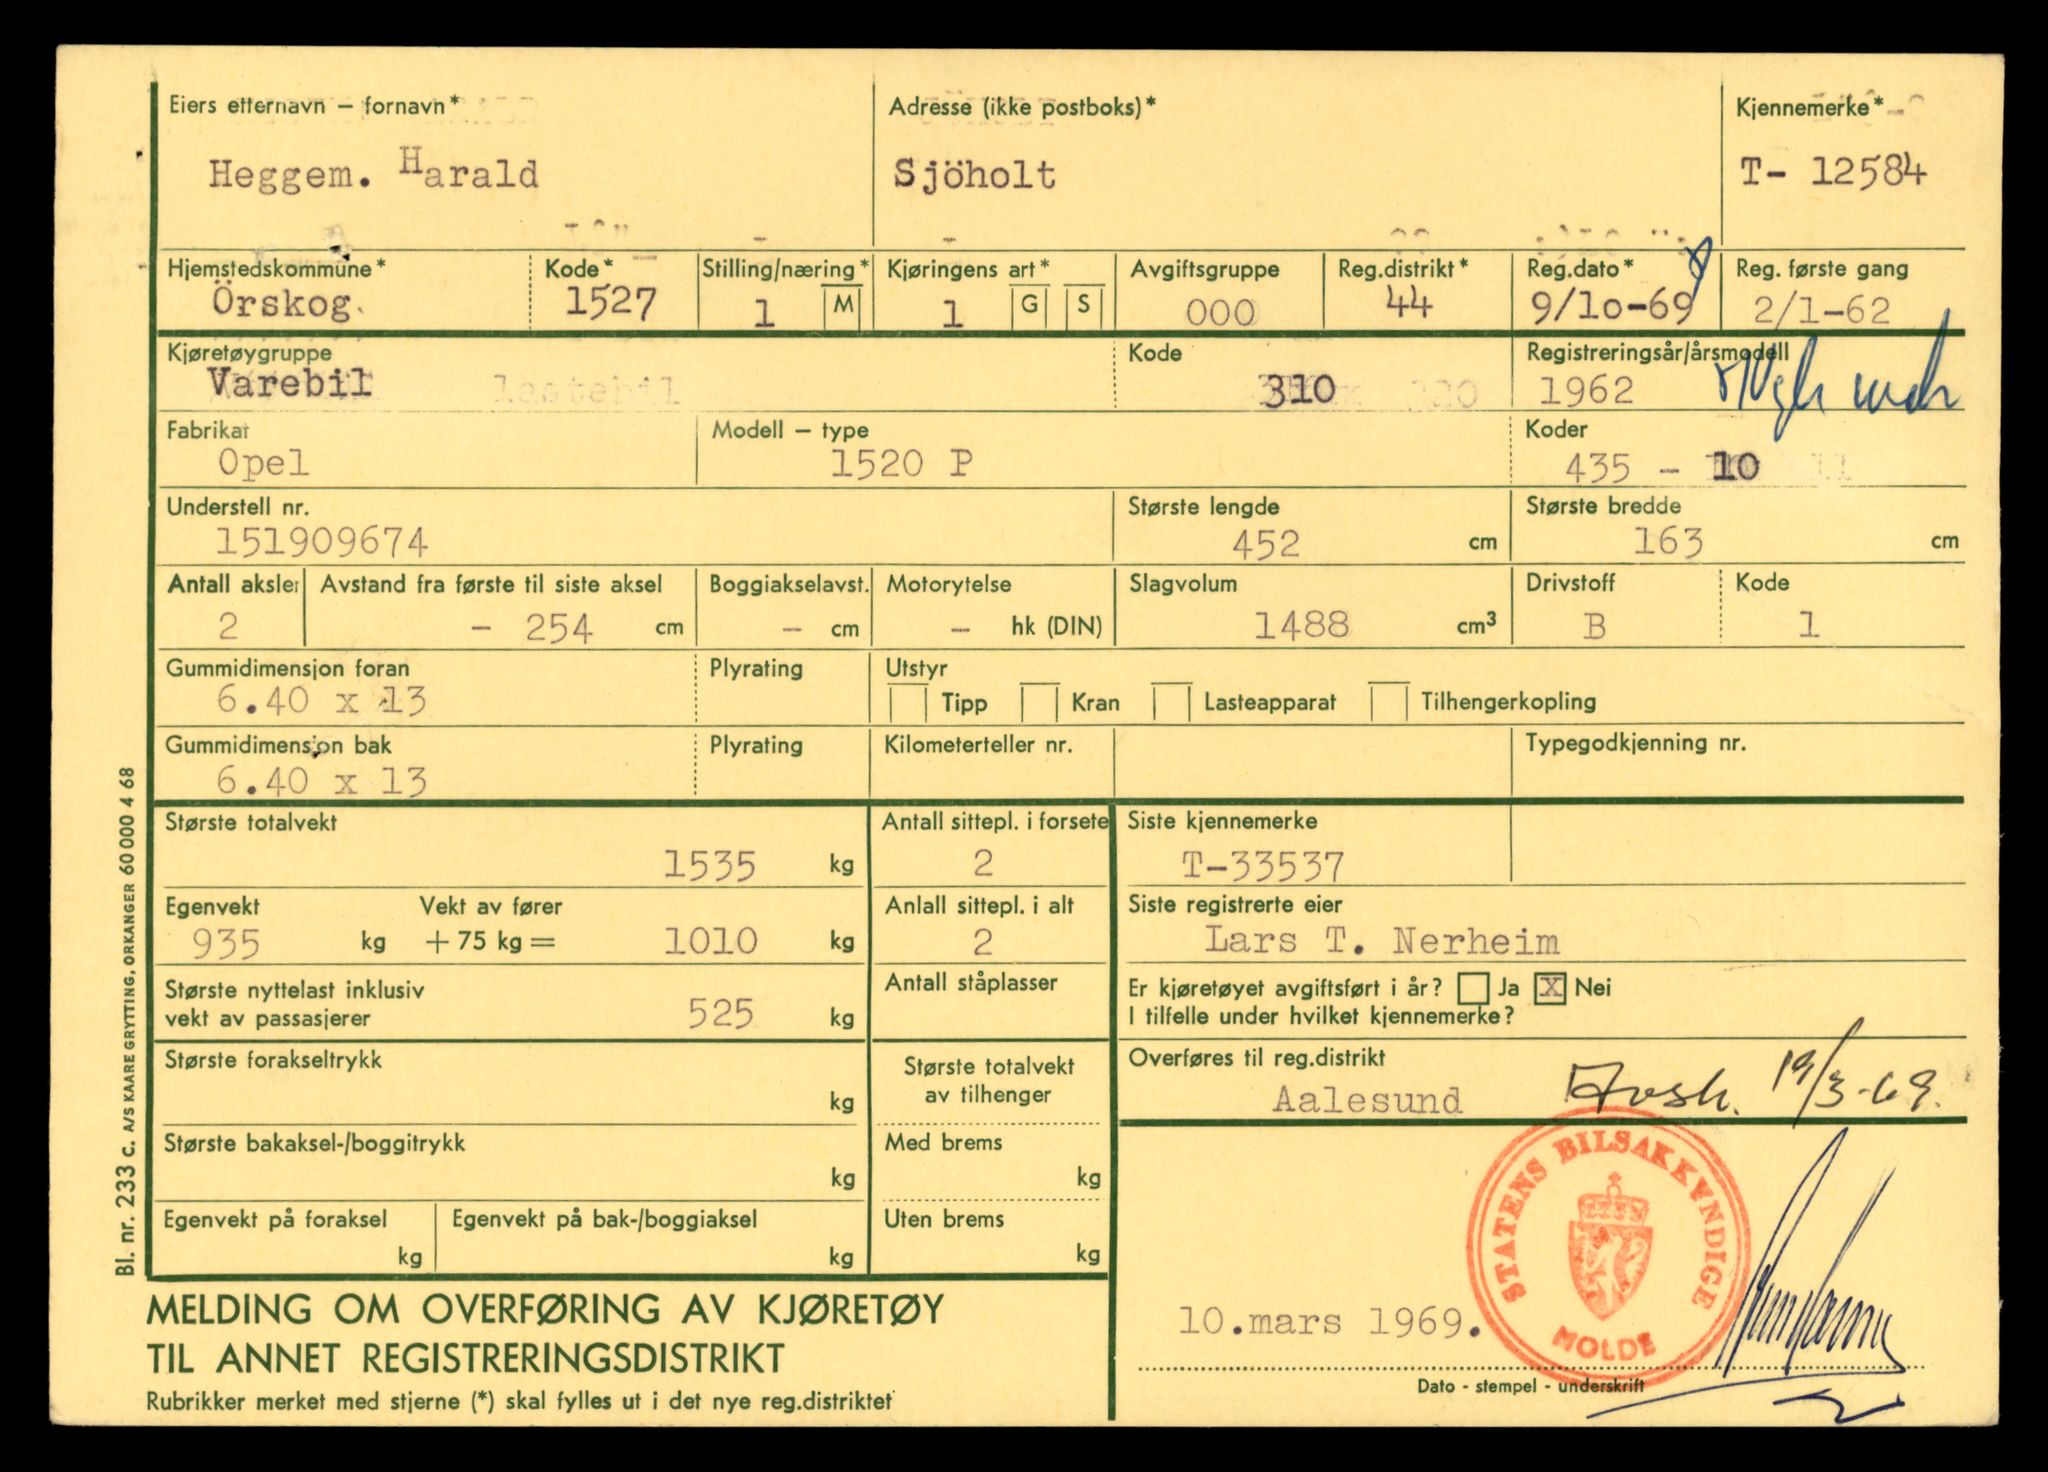 Eiers etternavn – fornavn*
Heggem. Harald
Adresse (ikke postboks)*
Sjöholt
Kjennemerke*
T- 12584
Hjemstedskommune*
Örskog
Kode*
1527
Stilling/næring*
1 M
Kjøringens art*
1 G S
Avgiftsgruppe
000
Reg.distrikt*
44
Reg.dato*
9/10-69
Reg. første gang
2/1-62
Kjøretøygruppe
Varebil lastebil
Kode
310
Registreringsår/årsmodell
1962
Fabrikat
Opel
Modell – type
1520 P
Koder
435 - 10 11
Understell nr.
151909674
Største lengde
452 cm
Største bredde
163 cm
Antall aksler
2
Avstand fra første til siste aksel
- 254 cm
Boggiakselavst.
- cm
Motorytelse
- hk (DIN)
Slagvolum
1488 cm³
Drivstoff
B
Kode
1
Gummidimensjon foran
6.40 x 13
Plyrating
Utstyr
Tipp Kran Lasteapparat Tilhengerkopling
Gummidimensjon bak
6.40 x 13
Plyrating
Kilometerteller nr.
Typegodkjenning nr.
Største totalvekt
1535 kg
Antall sittepl. i forsete
2
Siste kjennemerke
T-33537
Egenvekt
935 kg
Vekt av fører
+ 75 kg = 1010 kg
Anlall sittepl. i alt
2
Siste registrerte eier
Lars T. Nerheim
Største nyttelast inklusiv
vekt av passasjerer
525 kg
Antall ståplasser
Er kjøretøyet avgiftsført i år? Ja X Nei
I tilfelle under hvilket kjennemerke?
Største forakseltrykk
kg
Største totalvekt
av tilhenger
Overføres til reg.distrikt
Aalesund
19/3-69.
Største bakaksel-/boggitrykk
kg
Med brems
kg
Egenvekt på foraksel
kg
Egenvekt på bak-/boggiaksel
kg
Uten brems
kg
STATENS BILSAKKYNDIGE
MOLDE
10.mars 1969.
Dato - stempel - underskrift
MELDING OM OVERFØRING AV KJØRETØY
TIL ANNET REGISTRERINGSDISTRIKT
Rubrikker merket med stjerne (*) skal fylles ut i det nye reg.distriktet
Bl. nr. 233 c. A/S KAARE GRYTTING, ORKANGER 60 000 4 68